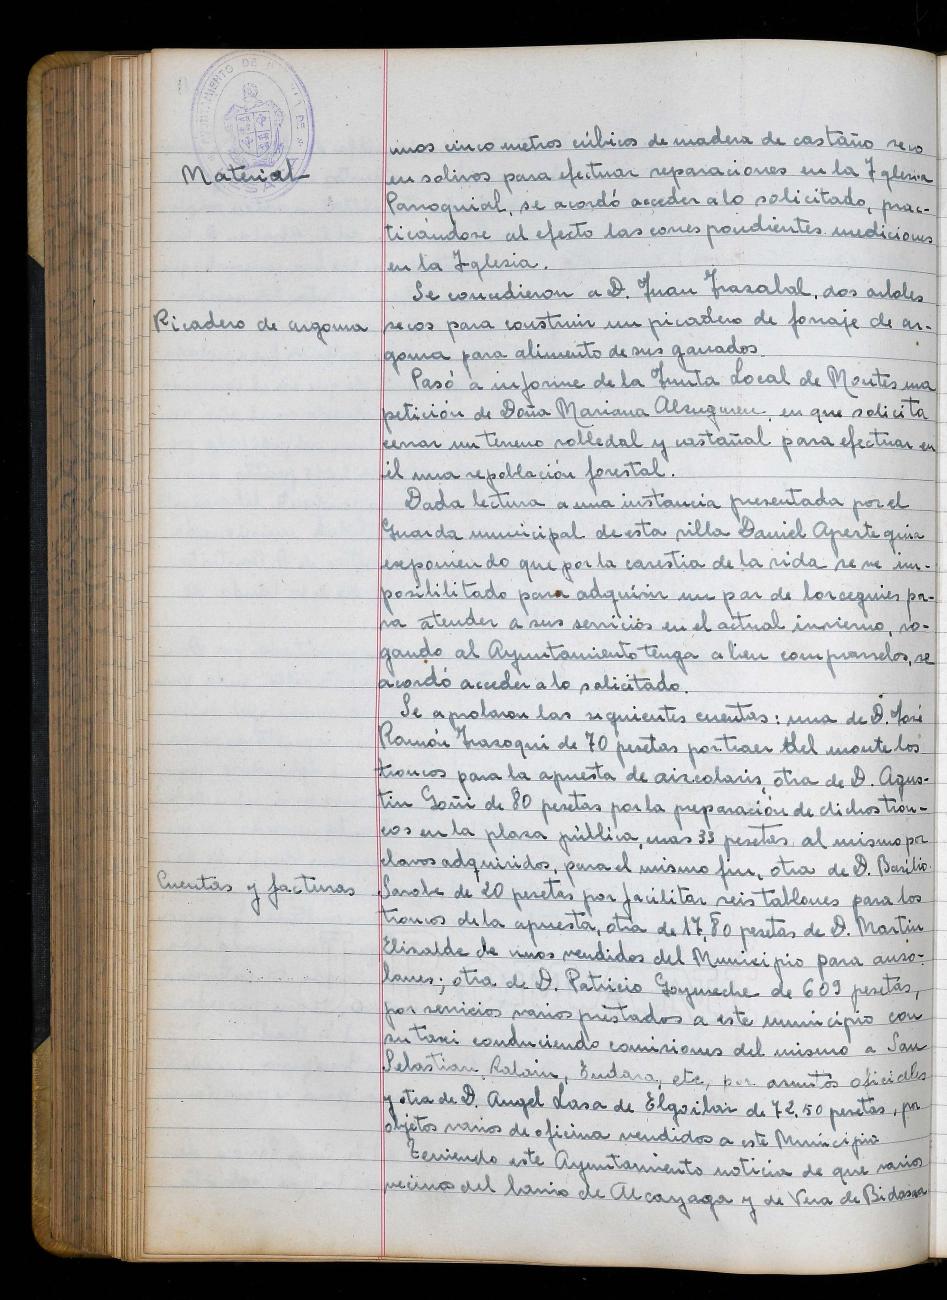 AYUNTAMIENTO DE
unos cinco metros cúbicos de madera de castaño seco
Material
en solivos para efectuar reparaciones en la Yglesia
Parroquial, se acordó acceder a lo solicitado, prac-
ticándose al efecto las correspondientes mediciones
en la Yglesia.
Se concedieron a D. Juan Irazabal, dos arboles
Picadero de argoma
secos para construir un picadero de forraje de ar-
goma para alimento de sus ganados.
Pasó a informe de la Junta Local de Montes una
petición de Doña Mariana Alzuguren, en que solicita
cerrar un terreno robledal y castañal para efectuar en
él una repoblación forestal.
Dada lectura a una instancia presentada por el
Guarda municipal de esta villa Daniel Apezteguia
exponiendo que por la carestia de la vida se ve im-
posibilitado para adquirir un par de borceguies pa-
ra atender a sus servicios en el actual invierno, ro-
gando al Ayuntamiento tenga a bien comprarlos, se
acordó acceder a lo solicitado.
Se aprobaron las siguientes cuentas: una de D. José
Ramón Irazoqui de 70 pesetas por traer del monte los
troncos para la apuesta de aizcolaris, otra de D. Agus-
tin Goñi de 80 pesetas por la preparación de dichos tron-
cos en la plaza pública, mas 33 pesetas al mismo por
clavos adquiridos, para el mismo fin, otra de D. Basilio
Cuentas y facturas
Sarobe de 20 pesetas por facilitar seis tablones para los
troncos de la apuesta, otra de 17,80 pesetas de D. Martin
Elizalde de vinos vendidos del Municipio para auzo-
lanes; otra de D. Patricio Goyeneche de 609 pesetas,
por servicios varios prestados a este municipio con
su taxi conduciendo comisiones del mismo a San
Sebastian, Endara, etc, por asuntos oficiales
y otra de D. Angel Lasa de Elgoibar de 72,50 pesetas, por
objetos varios de oficina vendidos a este Municipio
Teniendo este Ayuntamiento noticia de que varios
vecinos del barrio de Alcayaga y de Vera de Bidasoa